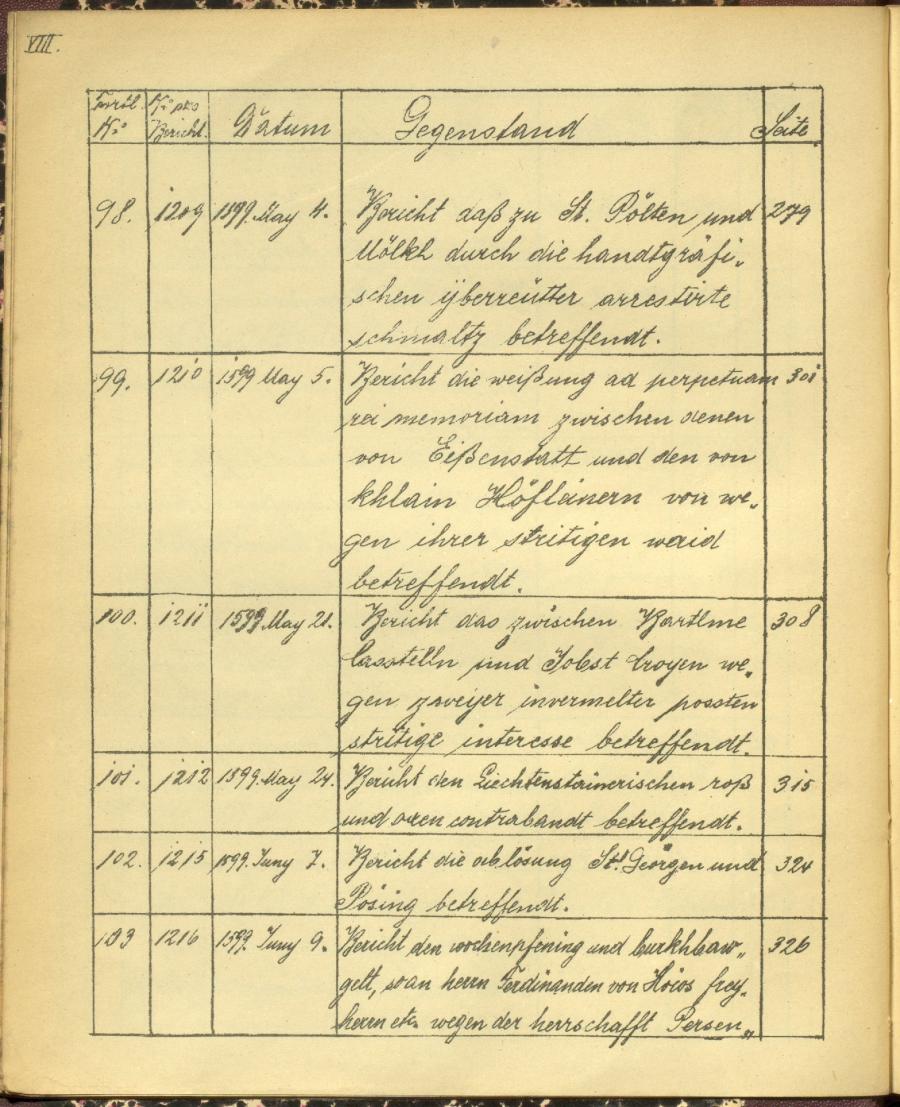 VIII.
Fortl. No pro Datum Gegenstand Seite
No Bericht.
98. 1209 1599 May 4. Bericht daß zu St. Pölten und 279
Mölkh durch die handtgräfi„
schen ÿberreütter arrestirte
schmaltz betreffendt.
99. 1210 1599 May 5. Bericht die weißung ad perpetuam 301
rei memoriam zwischen denen
von Eißenstatt und den von
khlain Höfleinern von we„
gen ihrer stritigen waid
betreffendt.
100. 1211 1599 May 21. Bericht das zwischen Bartlme 308
Casstelln und Jobst Croyen we„
gen zweyer invermelter possten
stritige interesse betreffendt.
101. 1212 1599 May 24. Bericht den Liechtenstainerischen roß 315
und oxen contrabandt betreffendt.
102. 1215 1599 Juny 7. Bericht die ablösung St. Georgen und 324
Pösing betreffendt.
103 1216 1599 Juny 9. Bericht den wochenpfening und burkhbaw„ 326
gelt, so an herrn Ferdinanden von Höios frey„
herrn etc. wegen der herrschafft Persen„